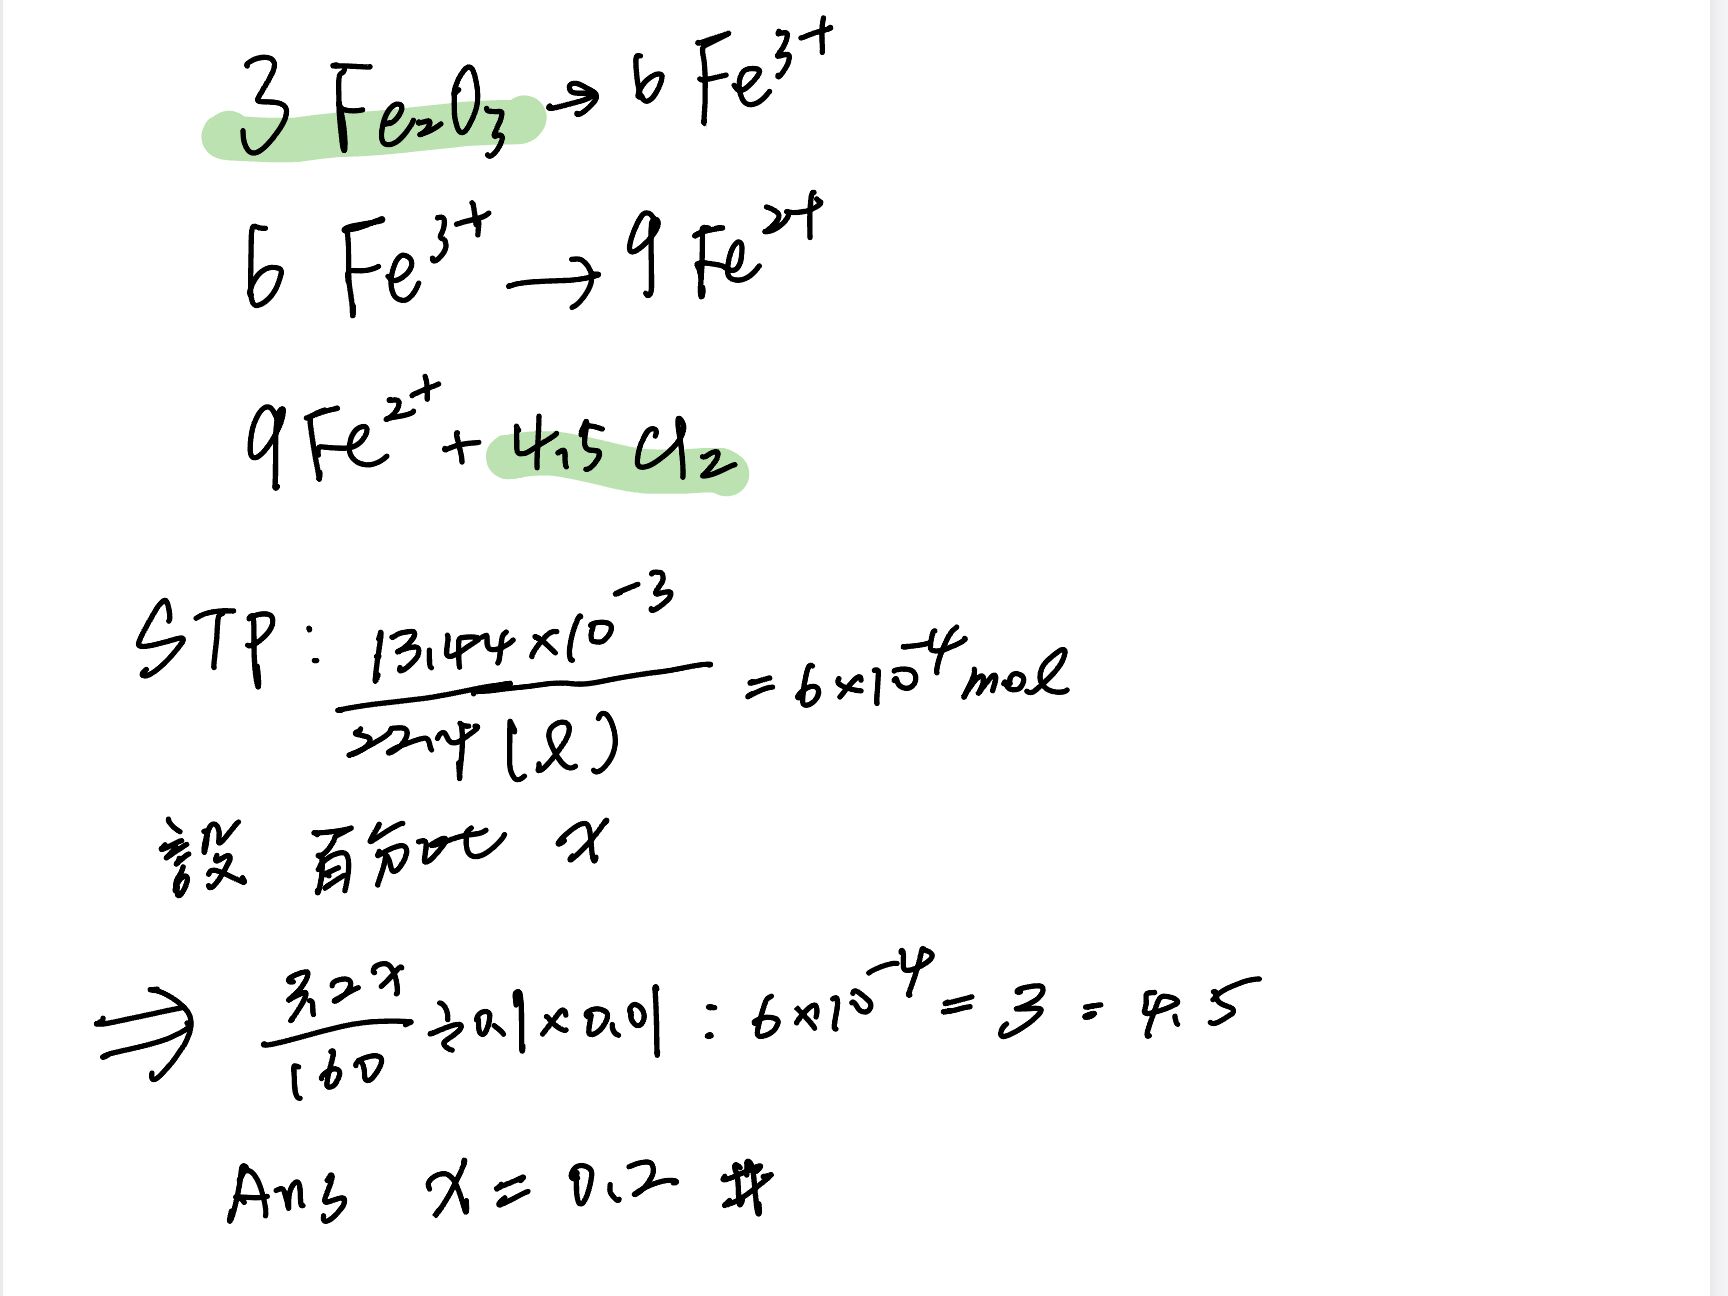 3 Fe₂O₃ → 6 Fe³⁺
6 Fe³⁺ → 9 Fe²⁺
9 Fe²⁺ + 4.5 Cl₂
STP : 13.44×10⁻³ / 22.4 (l) = 6×10⁻⁴ mol
設 百分比 x
⇒ 3.2x / 160 ÷ 0.1 × 0.01 : 6×10⁻⁴ = 3 : 4.5
Ans x = 0.2 #